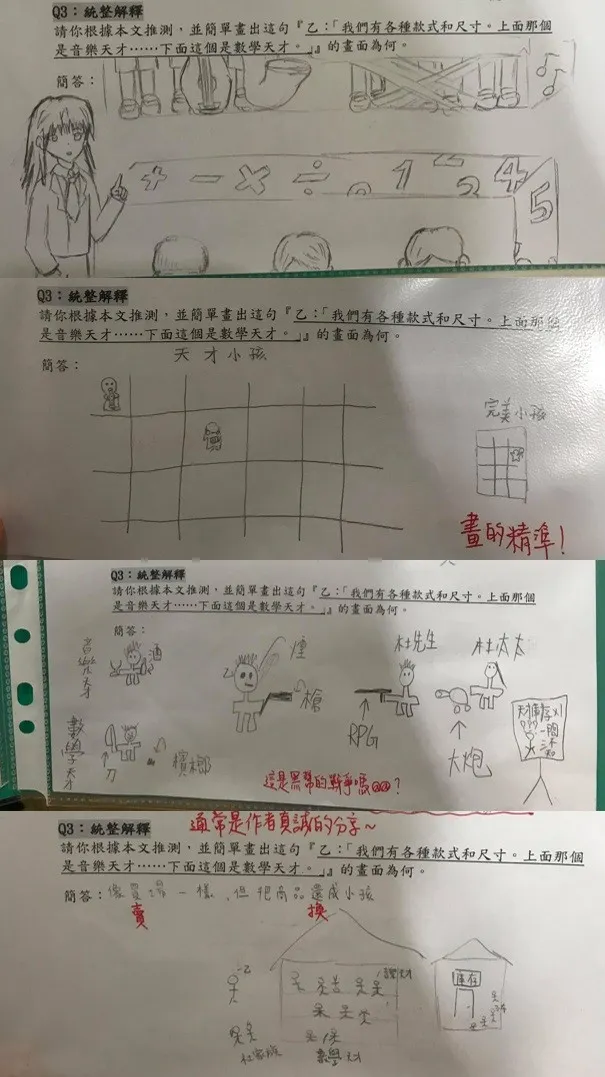 Q3：統整解釋
請你根據本文推測，並簡單畫出這句『乙：「我們有各種款式和尺寸。上面那個
是音樂天才……下面這個是數學天才。」』的畫面為何。
簡答：
+ − × ÷ 1 2 4
5
Q3：統整解釋
請你根據本文推測，並簡單畫出這句『乙：「我們有各種款式和尺寸。上面那個
是音樂天才……下面這個是數學天才。」』的畫面為何。
簡答：
天才小孩
完美小孩
畫的精準！
Q3：統整解釋
請你根據本文推測，並簡單畫出這句『乙：「我們有各種款式和尺寸。上面那個
是音樂天才……下面這個是數學天才。」』的畫面為何。
簡答：
音樂天才
酒
乙
煙
槍
杜先生
杜太太
RPG
大炮
數學天才
刀
檳榔
這是黑幫的戰爭嗎？
通常是作者真誠的分享~
Q3：統整解釋
請你根據本文推測，並簡單畫出這句『乙：「我們有各種款式和尺寸。上面那個
是音樂天才……下面這個是數學天才。」』的畫面為何。
簡答：像買場一樣，但把商品還成小孩
賣
換
乙
音樂天才
庫存
數學天才